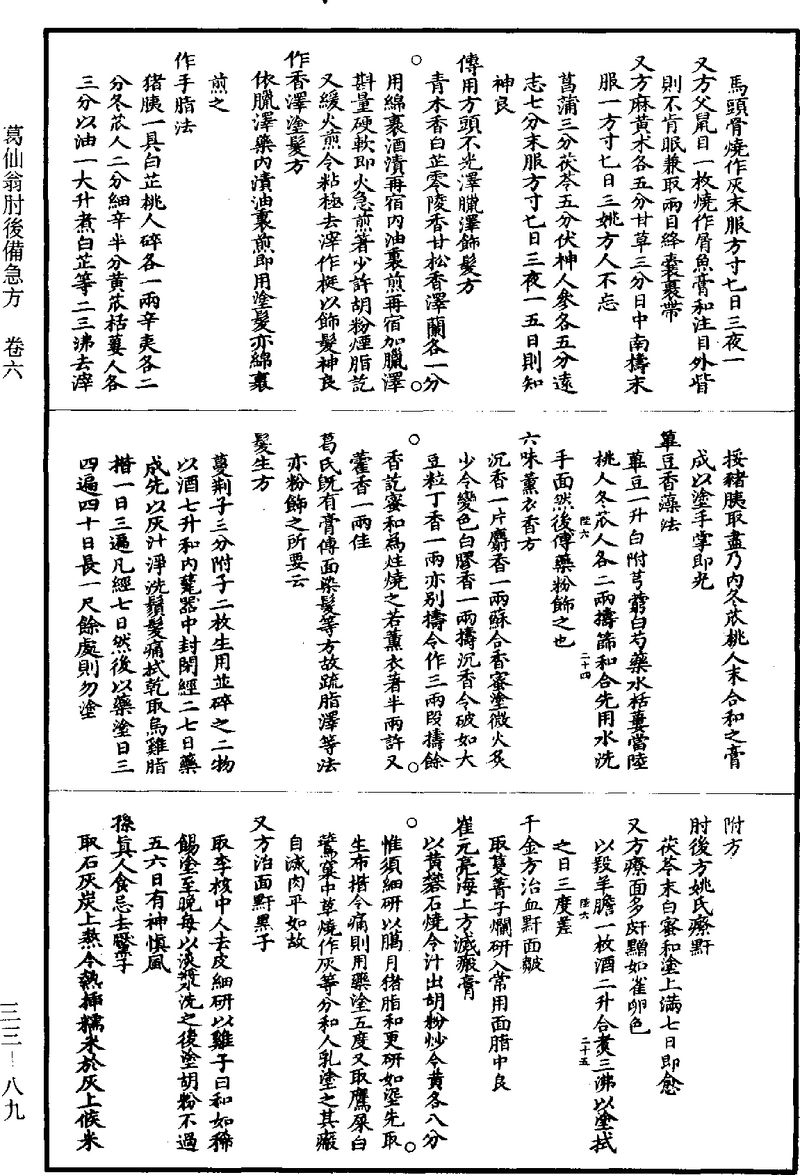 馬頭骨燒作灰末服方寸匕日三夜一
又方父鼠目一枚燒作屑魚膏和注目外眥
則不肯眠兼取兩目絳囊裹帶
又方麻黃朮各五分甘草三分日中南擣末
服一方寸匕日三姚方人不忘
菖蒲三分茯苓五分伏神人參各五分遠
志七分末服方寸匕日三夜一五日則知
神良
傳用方頭不光澤臘澤飾髮方
青木香白芷零陵香甘松香澤蘭各一分
用綿裹酒漬再宿內油裏煎再宿加臘澤
斟量硬軟即火急煎著少許胡粉煙脂訖
又緩火煎令粘極去滓作梃以飾髮神良
作香澤塗髮方
依臘澤藥內漬油裏煎即用塗髮亦綿裹
煎之
作手脂法
猪胰一具白芷桃人碎各一兩辛夷各二
分冬苽人二分細辛半分黃苽栝蔞人各
三分以油一大升煮白芷等二三沸去滓
挼豬胰取盡乃內冬苽桃人末合和之膏
成以塗手掌即光
蓽豆香藻法
蓽豆一升白附芎藭白芍藥水栝蔞當陸
桃人冬苽人各二兩擣篩和合先用水洗
手面然後傅藥粉飾之也
陸六
二十四
六味薰衣香方
沉香一片麝香一兩蘇合香蜜塗微火炙
少令變色白膠香一兩擣沉香令破如大
豆粒丁香一兩亦別擣令作三兩段擣餘
香訖蜜和為炷燒之若薰衣著半兩許又
藿香一兩佳
葛氏既有膏傅面染髮等方故疏脂澤等法
亦粉飾之所要云
髮生方
蔓荊子三分附子二枚生用並碎之二物
以酒七升和內甆器中封閉經二七日藥
成先以灰汁淨洗鬚髮痛拭乾取烏雞脂
揩一日三遍凡經七日然後以藥塗日三
四遍四十日長一尺餘處則勿塗
附方
肘後方姚氏療䵟
茯苓末白蜜和塗上滿七日即愈
又方療面多䵟䵳如雀卵色
以羖羊膽一枚酒二升合煮三沸以塗拭
之日三度差
陸六
二十五
千金方治血䵟面皺
取蔓菁子爛研入常用面脂中良
崔元亮海上方滅瘢膏
以黃礬石燒令汁出胡粉炒令黃各八分
惟須細研以臈月猪脂和更研如埿先取
生布揩令痛則用藥塗五度又取鷹屎白
鷰窠中草燒作灰等分和人乳塗之其瘢
自滅肉平如故
又方治面䵟黑子
取李核中人去皮細研以雞子白和如稀
餳塗至晚每以淡漿洗之後塗胡粉不過
五六日有神慎風
孫真人食忌去黶子
取石灰炭上熬令熱插糯米於灰上候米
葛仙翁肘後備急方　卷六
三三—八九